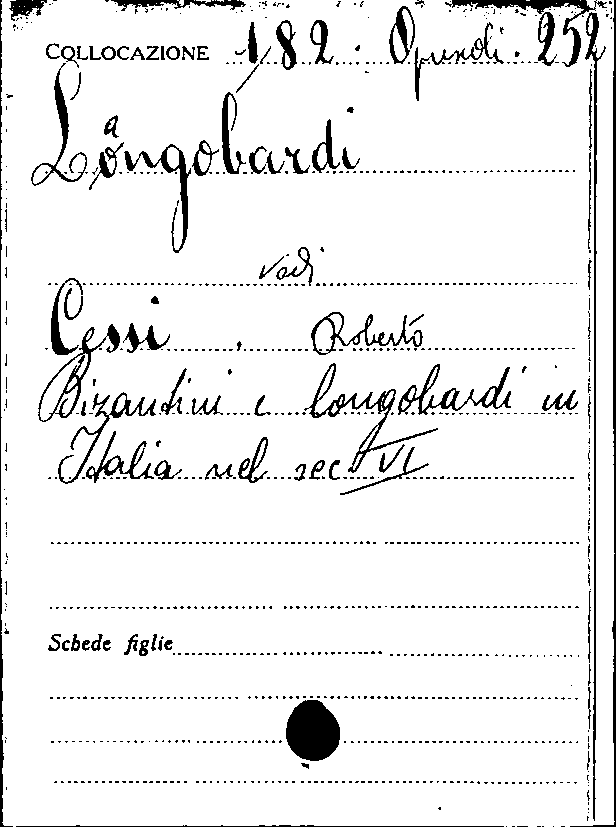 COLLOCAZIONE 182. Opuscoli. 252
Longobardi
a
vedi
Cessi, Roberto
Bizantini e longobardi in
Italia nel sec VI
Schede figlie